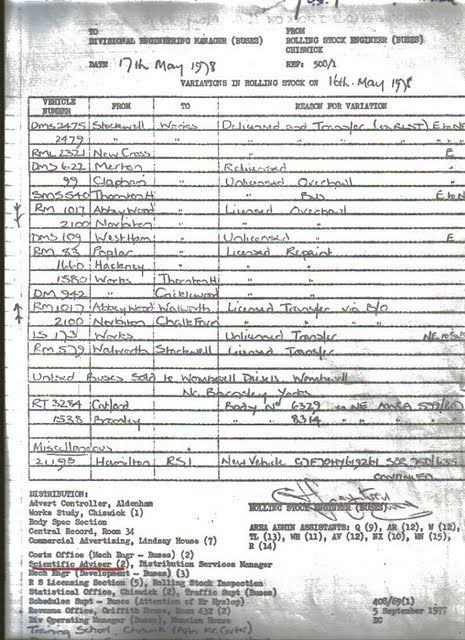 TO
FROM
DIVISIONAL ENGINEERING MANAGER (BUSES)
ROLLING STOCK ENGINEER (BUSES)
CHISWICK
DATE 17th May 1978
REF: 500/1
VARIATIONS IN ROLLING STOCK ON 16th May 1978
VEHICLE NUMBER FROM TO REASON FOR VARIATION
DMS 2475 Stockwell Works Delicensed and Transfer
2479 " " " " "
RML 2321 New Cross " E
DMS 622 Merton Relicensed
99 Clapham " Unlicensed Overhaul
SMS 540 Thornton H " "
RM 1017 Abbey Wood " Licensed Overhaul
2100 Norbiton " "
DMS 109 West Ham " Unlicensed E
RM 83 Poplar " Licensed Repaint
1660 Hackney " " "
1580 Works Thornton H " "
DM 942 " Cricklewood " "
RM 1017 Abbey Wood Walworth Licensed Transfer via
2100 Norbiton Chalk Farm " " "
LS 173 Works Unlicensed Transfer
RM 579 Walworth Stockwell Licensed Transfer
Unlicd Buses Sold to Wombwell Diesels, Wombwell
Nr. Barnsley Yorks
RT 3284 Catford Body No 6329
1538 Bromley " " 8314
Miscellaneous
2119B Hamilton RS1 New Vehicle
CONTINUED
DISTRIBUTION:
ROLLING STOCK ENGINEER (BUSES)
Advert Controller, Aldenham
Works Study, Chiswick (1)
Body Spec Section
Central Record, Room 34
Commercial Advertising, Lindsay House (7)
AREA ADMIN ASSISTANTS: Q (9), AR (12), W (12),
TL (13), WH (11), AV (12), NX (10), WN (15),
R (14)
Costs Office (Mech Engr - Buses) (2)
Scientific Adviser (2), Distribution Services Manager
Mech Engr (Development - Buses) (3)
R S Licensing Section (5), Rolling Stock Inspection
Statistical Office, Chiswick (2), Traffic Supt (Buses)
Schedules Supt - Buses (Attention of Mr Hyslop)
Revenue Office, Griffith House, Room
Div Operating Manager (Buses), Mansion House
Training School, Chiswick
408/69(1)
5 September 1977
DC